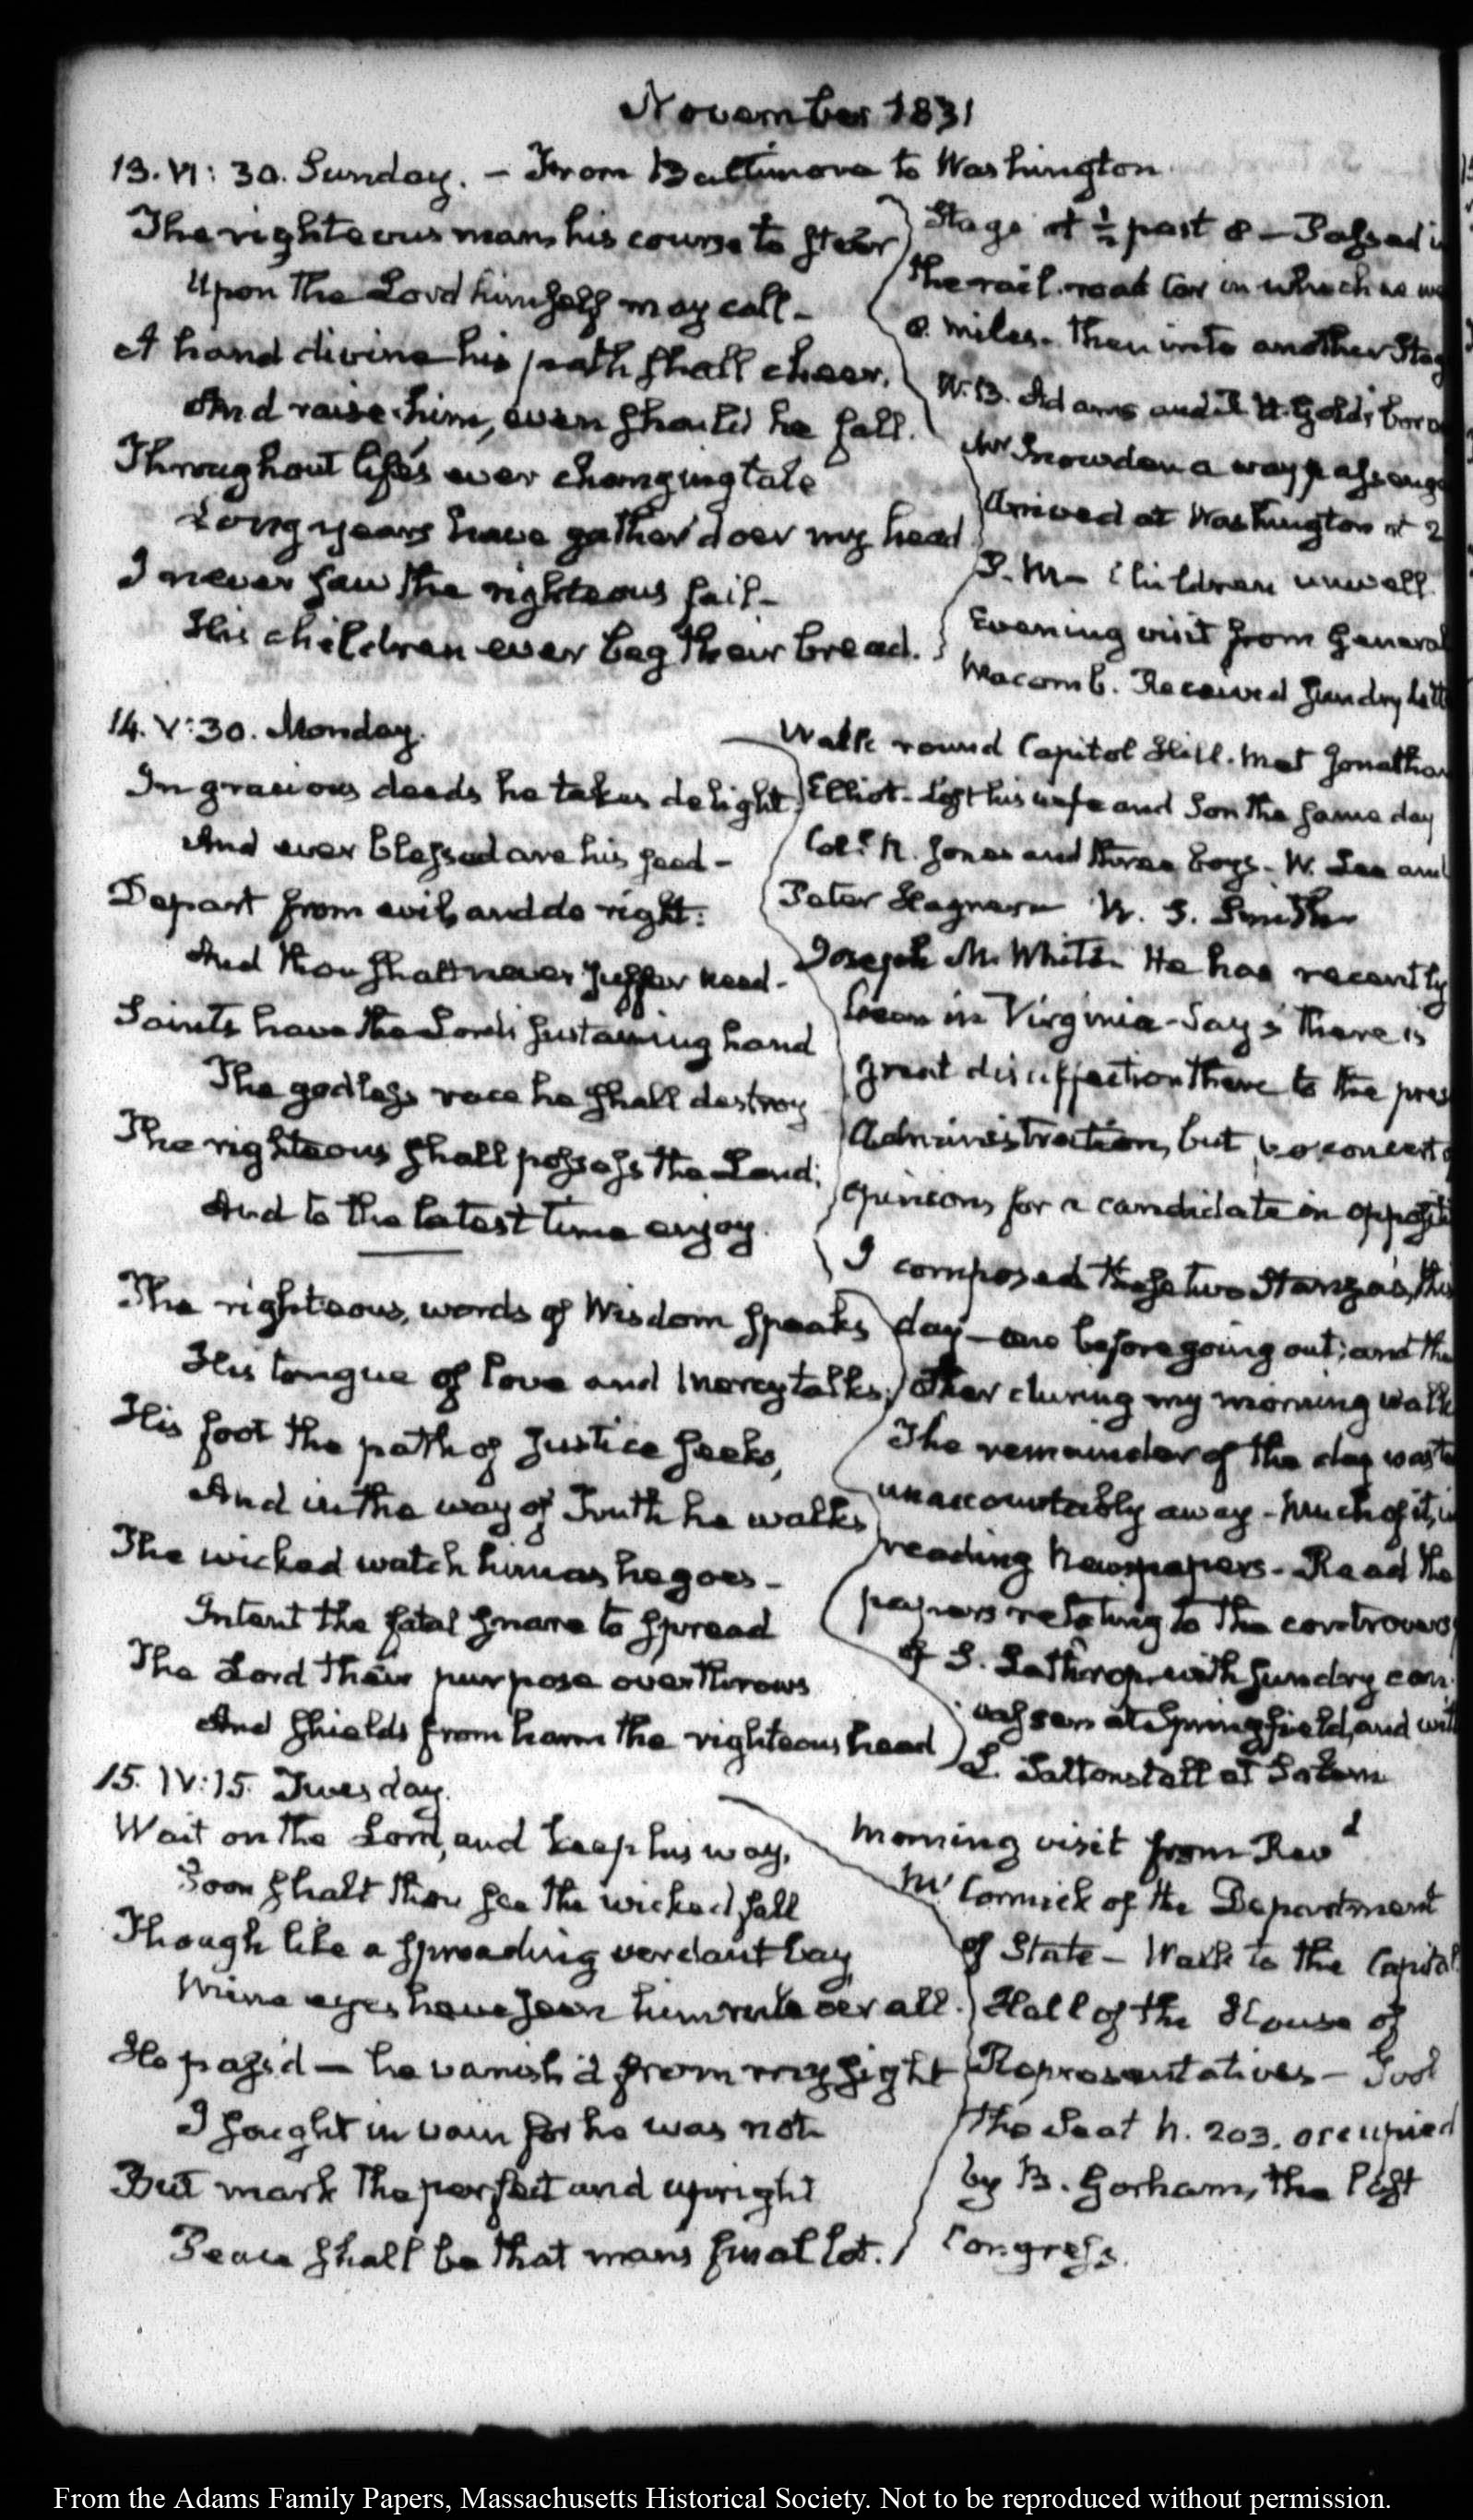 November 1831
13. VI: 30. Sunday. – From Baltimore to Washington
The righteous man, his course to steer
Upon the Lord himself may call –
A hand divine his path shall cheer,
And raise him, even should he fall.
Throughout life's ever changing tale
Long years have gather'd oer my head
I never saw the righteous fail –
His children ever beg their bread.
Stage at ½ past 8 – Passed
the rail-road Car in which we
8. miles. then into another Stag
W. B. Adams and
Mr Snowden a way passeng
Arrived at Washington at 2
P.M – Children unwell
Evening visit from General
Macomb. Received sundry
14. V: 30. Monday.
In gracious deeds he takes delight;
And ever blessed are his seed –
Depart from evil, and do right:
And thou shalt never suffer need –
Saints have the Lord's sustaining hand
The godless race he shall destroy
The righteous shall possess the Land;
And to the latest time enjoy.
The righteous, words of Wisdom speaks
His tongue of Love and Mercy talks;
His foot the path of Justice seeks,
And in the way of Truth he walks
The wicked watch him as he goes –
Intent the fatal snare to spread
The Lord their purpose overthrows
And shields from harm the righteous head
Walk round Capitol Hill. Met Jonathan
Elliot – Lost his wife and Son the same day
Jones and three boys – W. Lee and
Peter Hagner – W. S. Smith
Joseph M. White – He has recently
been in Virginia – Says there is
great disaffection there to the pres
Administration, but no concert
opinions for a candidate in
I composed these two Stanzas, this
day – one before going out; and the
other during my morning walk
The remainder of the day
unaccountably away – Much of it, in
reading Newspapers – Read the
papers relating to the controvers
of S. Lathrop, with sundry can
vassers at Springfield, and with
L. Saltonstall at Salem
15. IV: 15. Tuesday.
Wait on the Lord, and keep his way,
Soon shalt thou see the wicked fall
Though like a spreading verdant bay
Mine eyes have seen him rule oer all.
He pass'd — he vanish'd from my sight
I sought in vain for he was not
But mark the perfect and upright
Peace shall be that mans final lot.
Morning visit from Revd
Mr Cormick of the Department
of State – Walk to the Capitol
Hall of the House of
Representatives – Took
the Seat N. 203. occupied
by B. Gorham, the last
Congress.
From the Adams Family Papers, Massachusetts Historical Society. Not to be reproduced without permission.